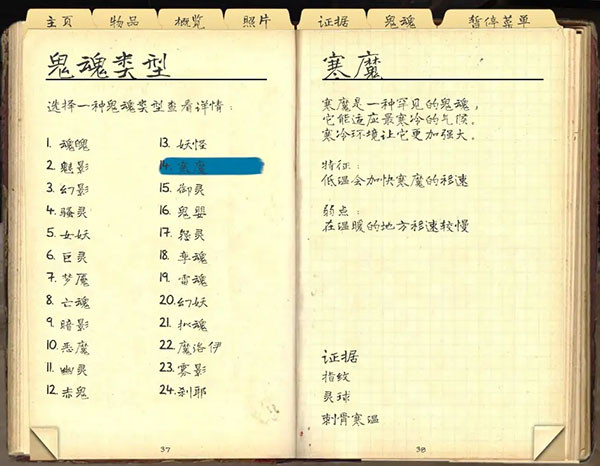 主页 物品 概览 照片 证据 鬼魂 暂停菜单
鬼魂类型
选择一种鬼魂类型查看详情:
1. 魂魄
2. 魅影
3. 幻影
4. 骚灵
5. 女妖
6. 巨灵
7. 梦魇
8. 亡魂
9. 暗影
10. 恶魔
11. 幽灵
12. 赤鬼
13. 妖怪
14. 寒魔
15. 御灵
16. 鬼婴
17. 怨灵
18. 孪魂
19. 雷魂
20. 幻妖
21. 拟魂
22. 魔洛伊
23. 雾影
24. 刹耶
37
寒魔
寒魔是一种罕见的鬼魂,
它能适应最寒冷的气候。
寒冷环境让它更加强大。
特征:
低温会加快寒魔的移速
弱点:
在温暖的地方移速较慢
证据
指纹
灵球
刺骨寒温
38